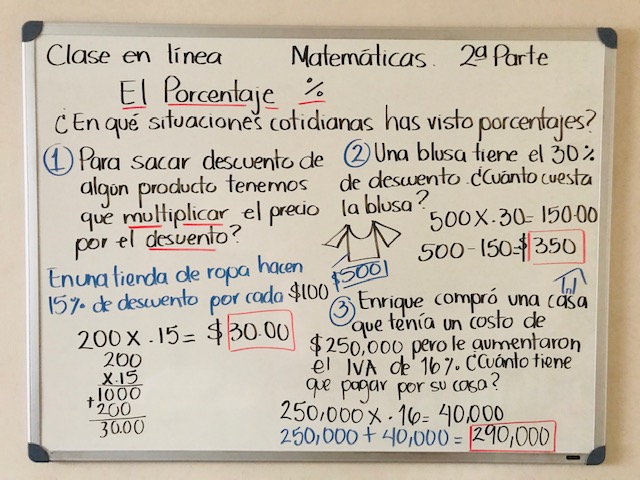 Clase en línea Matemáticas. 2ª Parte
El Porcentaje %
¿En qué situaciones cotidianas has visto porcentajes?
1 Para sacar descuento de
algún producto tenemos
que multiplicar el precio
por el desuento?
En una tienda de ropa hacen
15% de descuento por cada $100
200 X .15 = $ 30.00
200
X .15
1000
+200
30.00
2 Una blusa tiene el 30%
de descuento. ¿Cuánto cuesta
la blusa?
500 X .30 = 150.00
500 - 150 = $ 350
$500
3 Enrique compró una casa
que tenía un costo de
$250,000 pero le aumentaron
el IVA de 16%. ¿Cuánto tiene
que pagar por su casa?
250,000 X .16 = 40,000
250,000 + 40,000 = 290,000